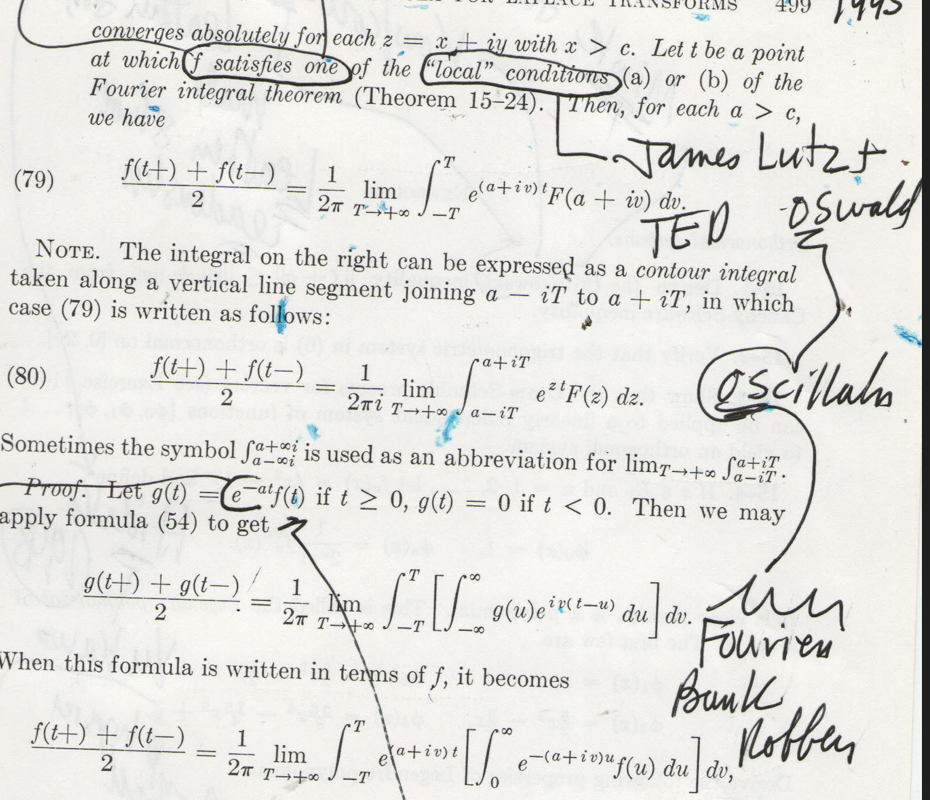 FOR LAPLACE TRANSFORMS 499 1995
converges absolutely for each z = x + iy with x > c. Let t be a point
at which f satisfies one of the "local" conditions (a) or (b) of the
Fourier integral theorem (Theorem 15–24). Then, for each a > c,
we have
James Lutz +
(79) f(t+) + f(t−) / 2 = 1/2π lim T→+∞ ∫_{−T}^{T} e^{(a+iv)t} F(a + iv) dv.
TED Oswald
NOTE. The integral on the right can be expressed as a contour integral
taken along a vertical line segment joining a − iT to a + iT, in which
case (79) is written as follows:
(80) f(t+) + f(t−) / 2 = 1/2πi lim T→+∞ ∫_{a−iT}^{a+iT} e^{zt} F(z) dz.
Sometimes the symbol ∫_{a−∞i}^{a+∞i} is used as an abbreviation for lim_{T→+∞} ∫_{a−iT}^{a+iT}.
Proof. Let g(t) = e^{−at}f(t) if t ≥ 0, g(t) = 0 if t < 0. Then we may
apply formula (54) to get
g(t+) + g(t−) / 2 = 1/2π lim T→+∞ ∫_{−T}^{T} [ ∫_{−∞}^{∞} g(u)e^{iv(t−u)} du ] dv.
When this formula is written in terms of f, it becomes
Bank
Robber
f(t+) + f(t−) / 2 = 1/2π lim T→+∞ ∫_{−T}^{T} e^{(a+iv)t} [ ∫_{0}^{∞} e^{−(a+iv)u} f(u) du ] dv,